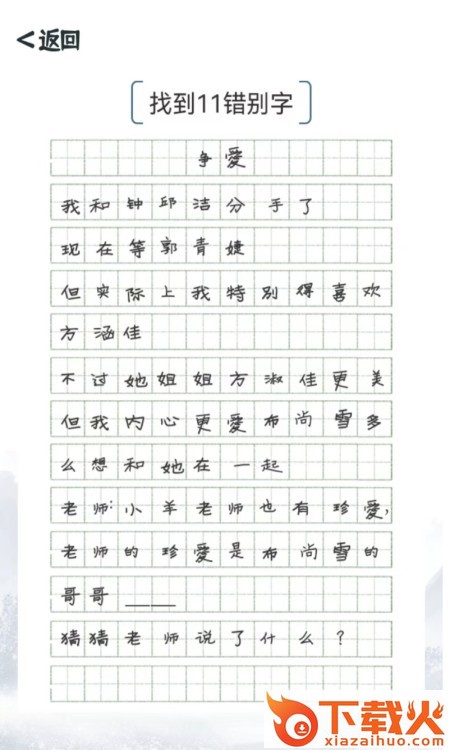 <返回
找到11错别字
争爱
我和钟邱洁分手了
现在等郭青婕
但实际上我特别得喜欢
方涵佳
不过她姐姐方淑佳更美
但我内心更爱布尚雪多
么想和她在一起
老师:小羊老师也有珍爱,
老师的珍爱是布尚雪的
哥哥____
猜猜老师说了什么?
下载火
xiazaihuo.com